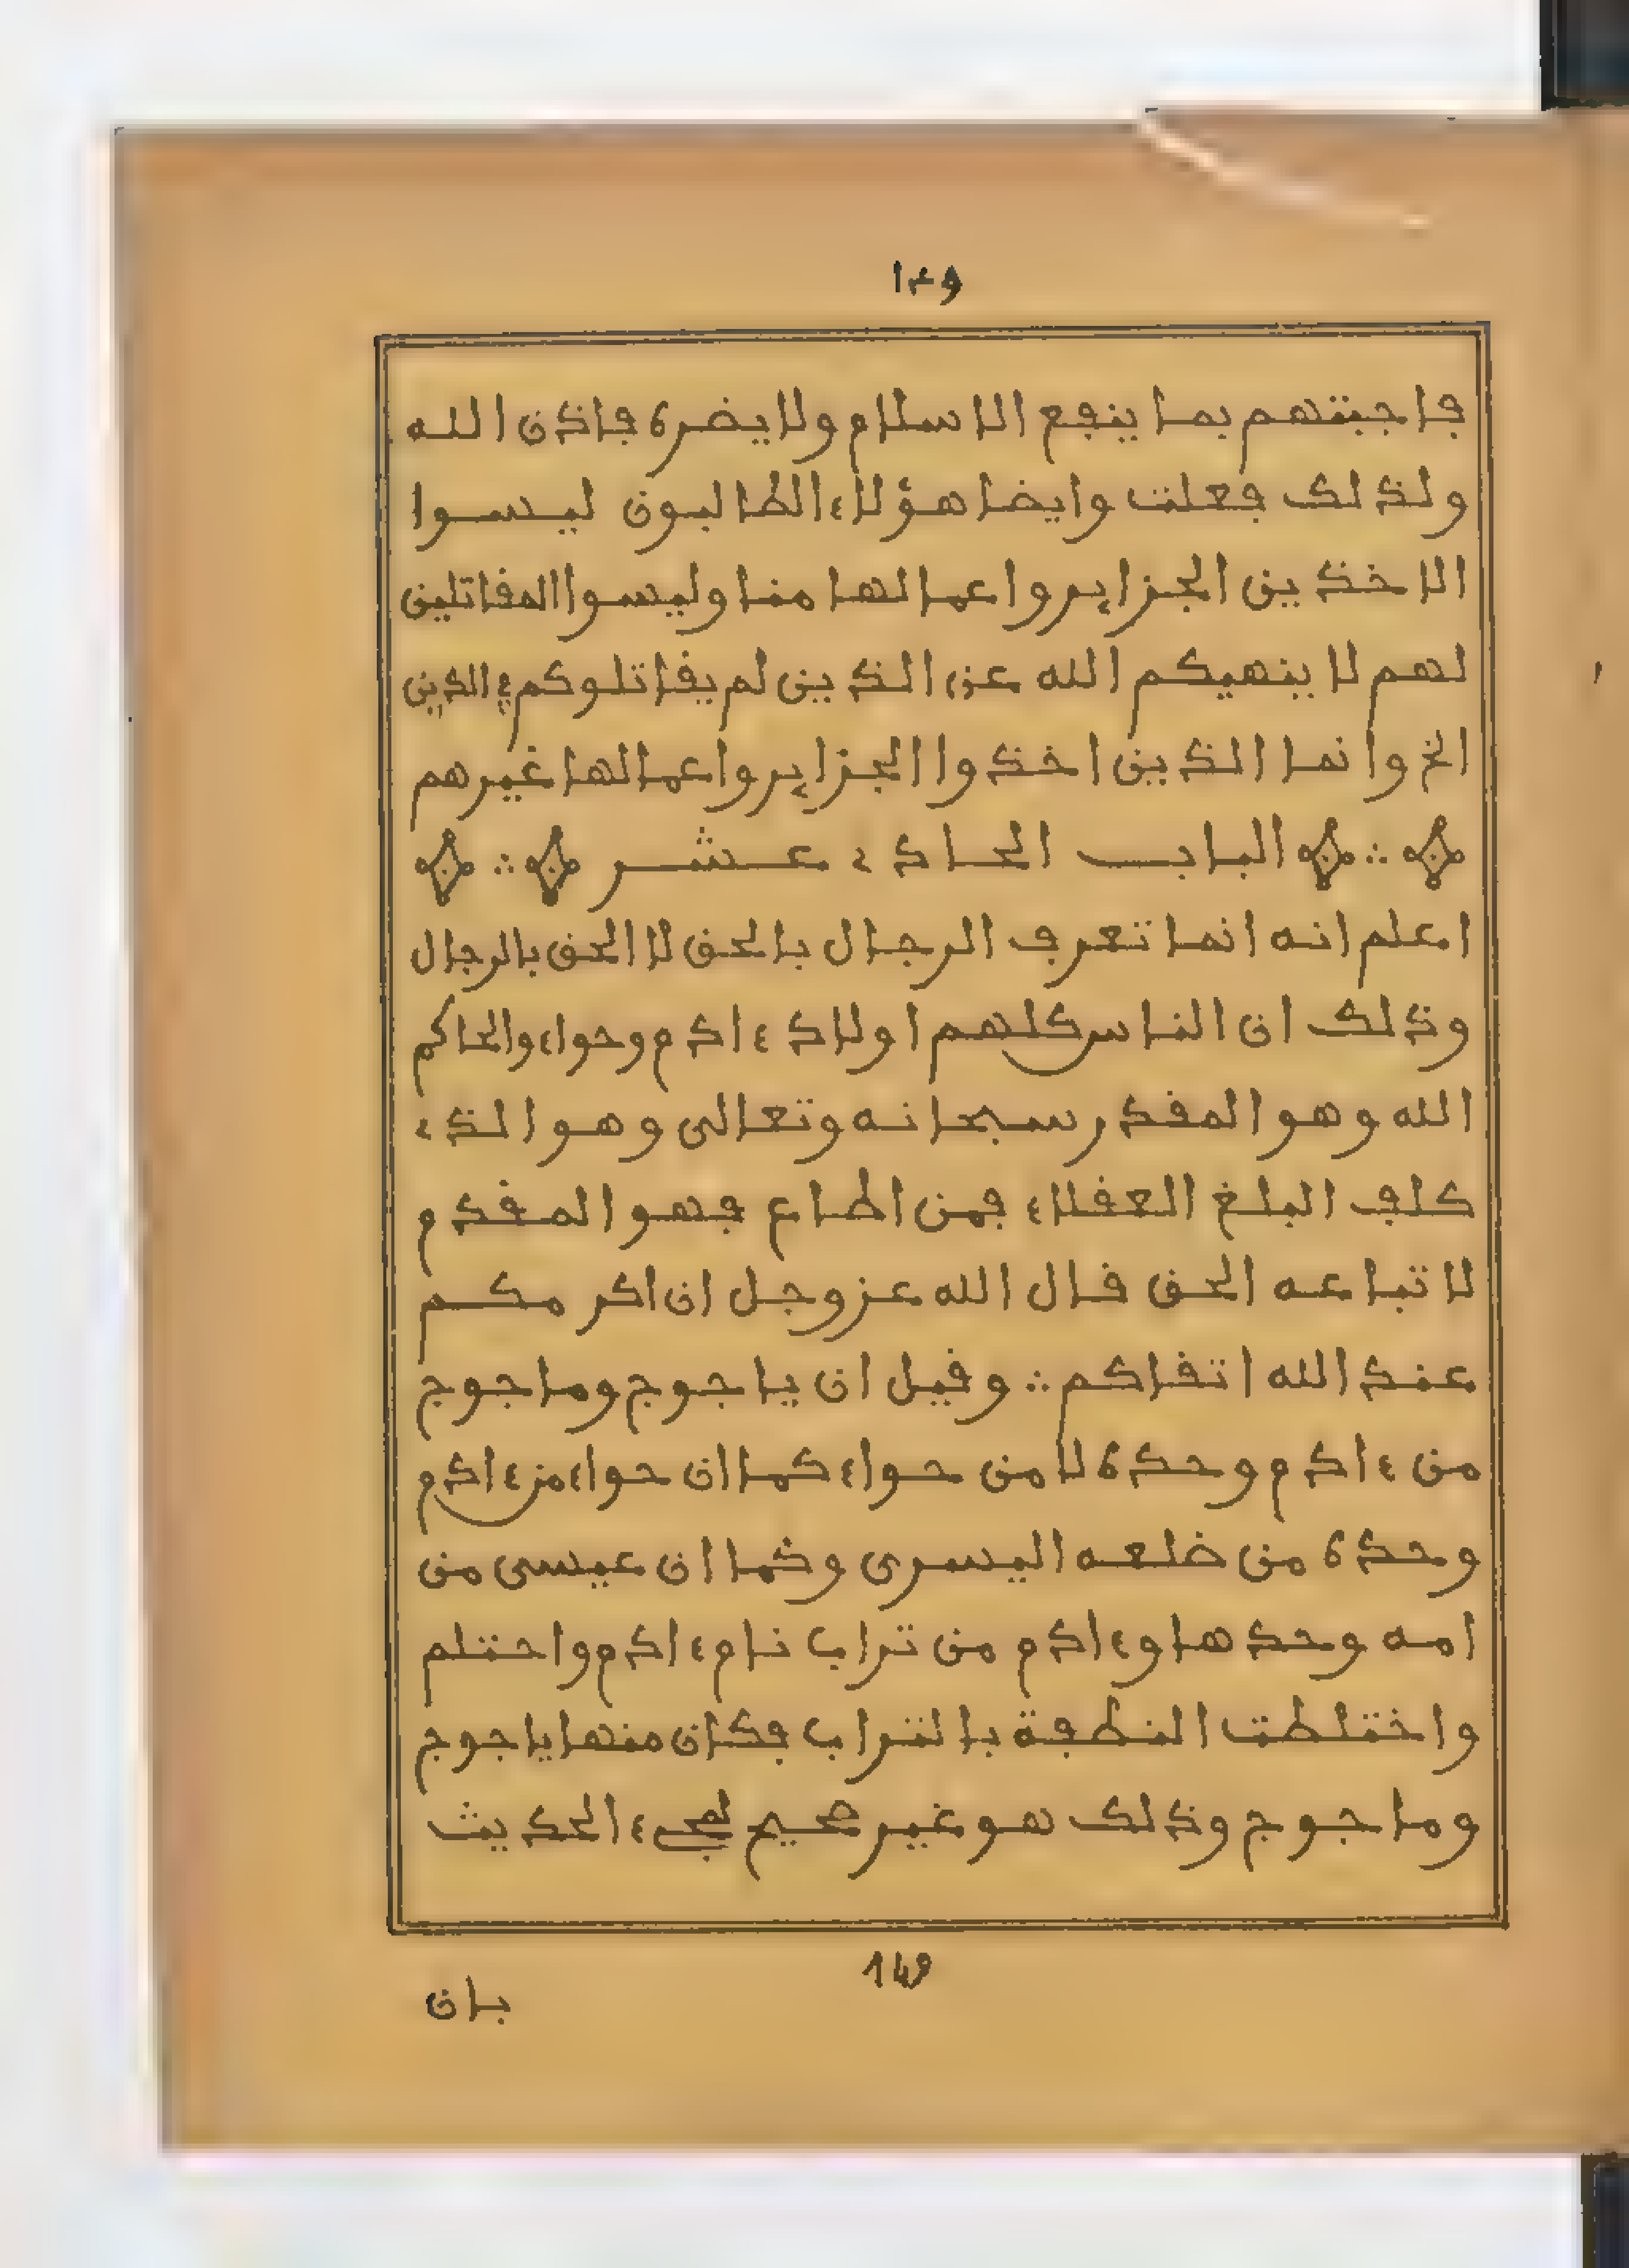 ١٤٩
فاجبتهم بما ينفع الاسلام ولا يضره فاذن الله
ولذلك فعلت وايضا هؤلاء الطالبون ليسوا
الاخذين الجزاير واعمالها منا وليسوا المقاتلين
لهم لا ينهيكم الله عن الذين لم يقاتلوكم في الدين
الخ وانما الذين اخذوا الجزاير واعمالها غيرهم
الباب الحادي عشر
اعلم انه انما تعرف الرجال بالحق لا الحق بالرجال
وذلك ان الناس كلهم اولاد ءادم وحواء والحاكم
الله وهو المقدر سبحانه وتعالى وهو الذي
كلف البلغ العقلاء فمن اطاع فهو المقدم
لاتباعه الحق قال الله عز وجل ان اكرمكم
عند الله اتقاكم ∴ وقيل ان ياجوج وماجوج
من ءادم وحده لا من حواء كما ان حواء من ءادم
وحده من ضلعه اليسرى وكما ان عيسى من
امه وحدها وءادم من تراب نام ءادم واحتلم
واختلطت النطفة بالتراب فكان منها ياجوج
وماجوج وذلك هو غير صحيح لمجيء الحديث
149
بان